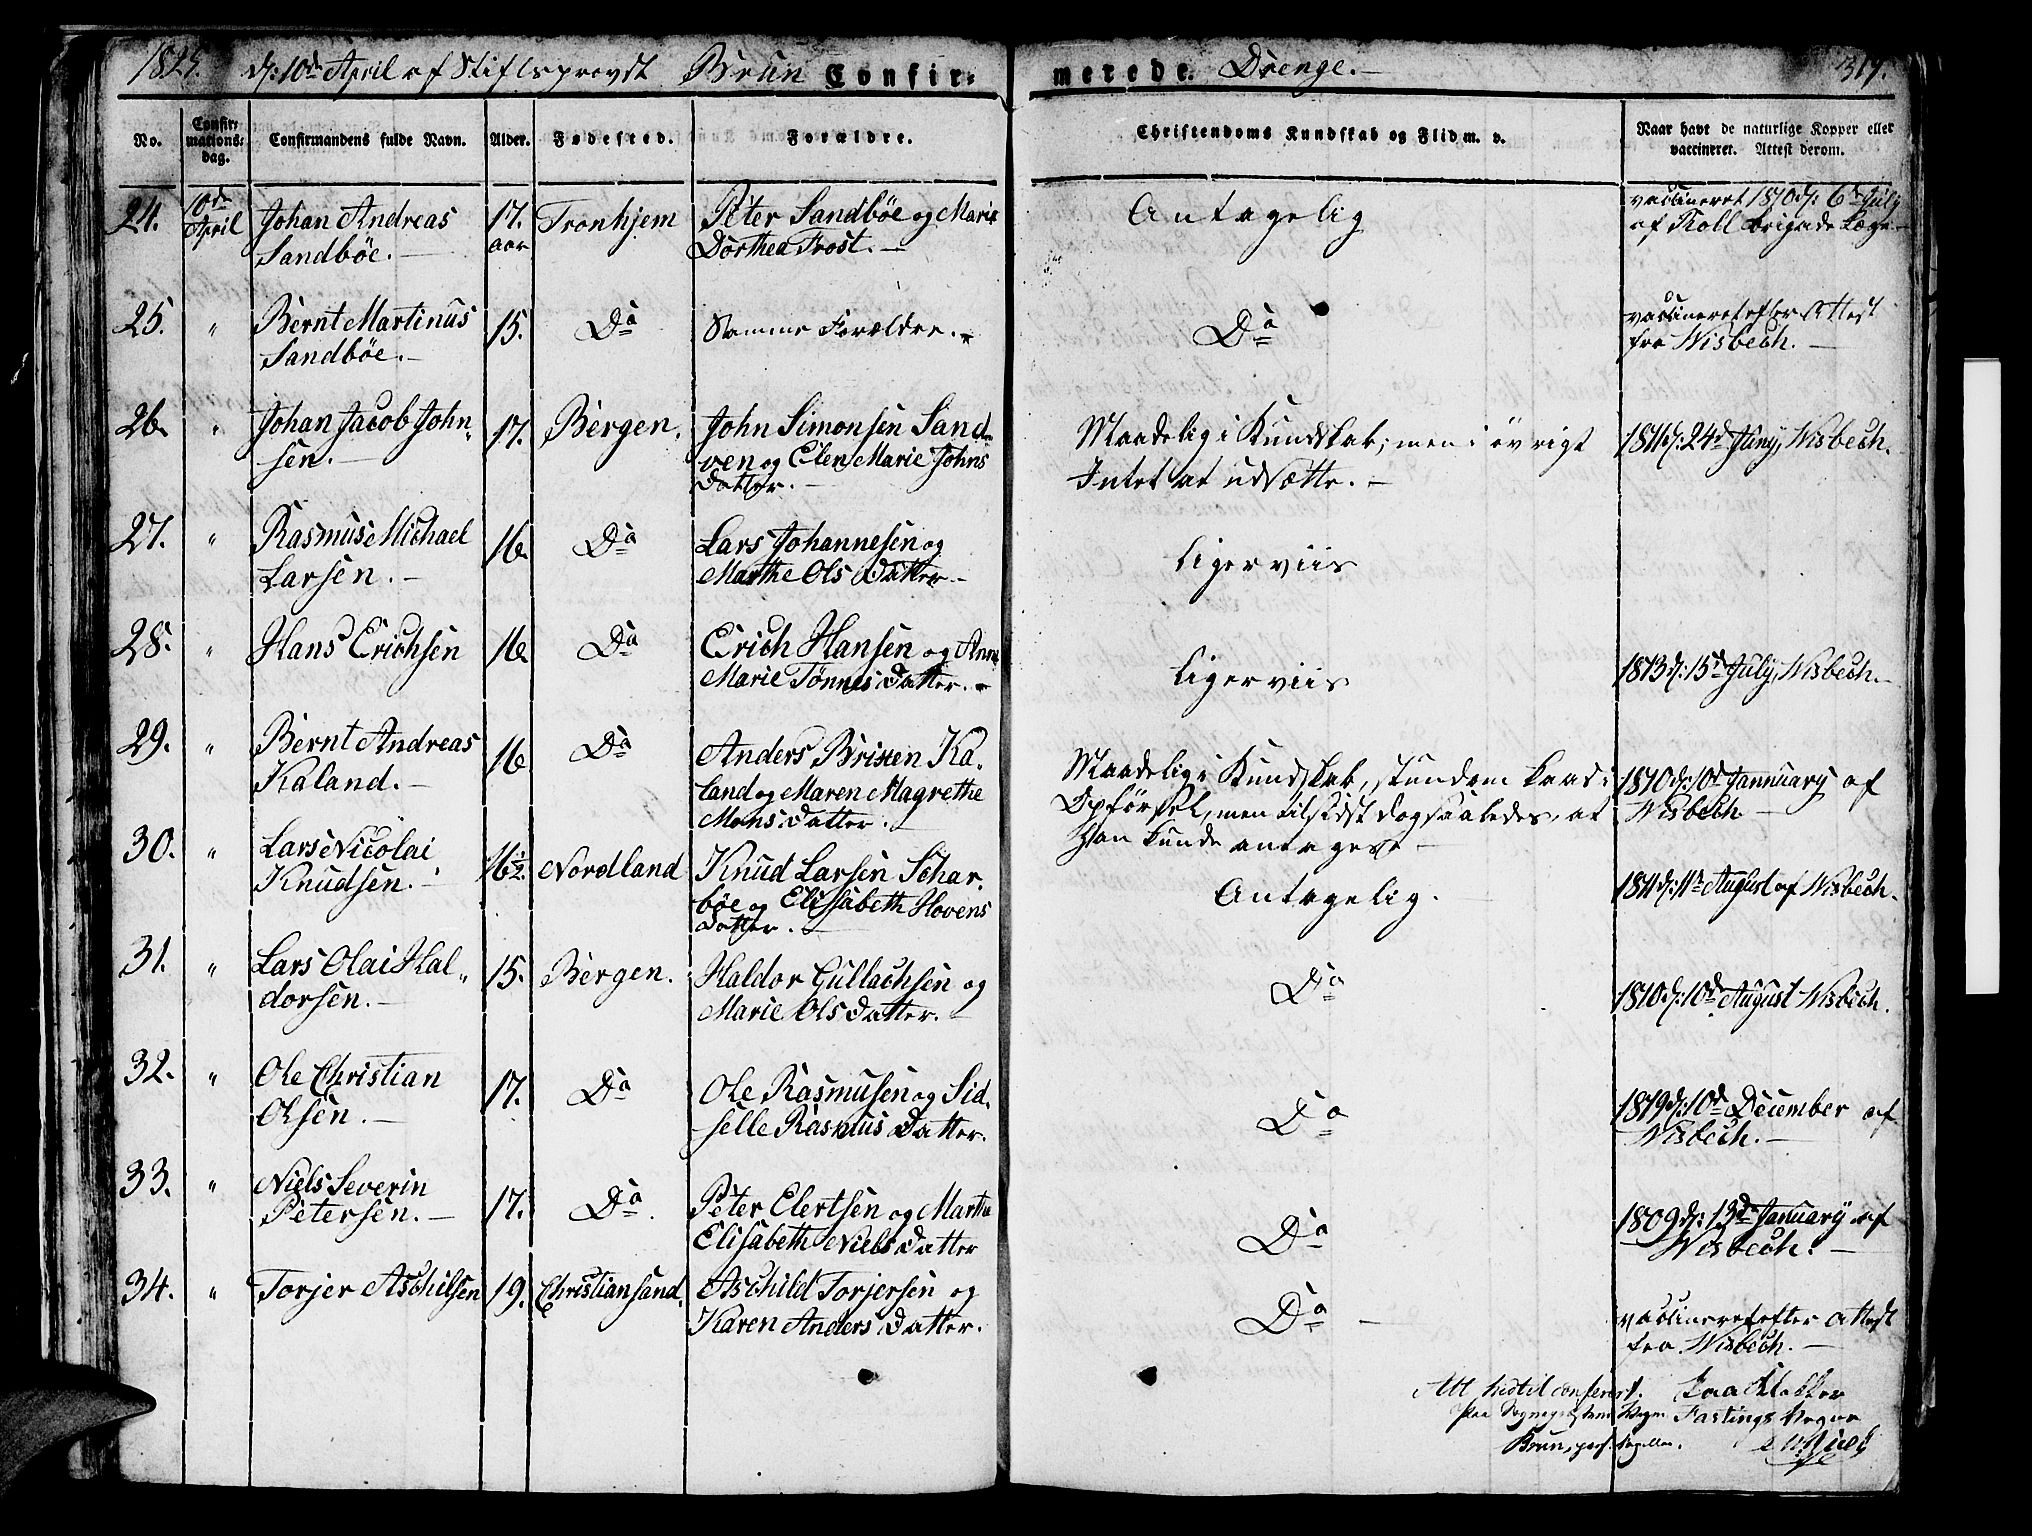 1825. d: 10de April af Stiftsprovst Brun Confir= merede. Drenge. — 317.
No. Confir= mations= dag. Confirmandens fulde Navn. Alder. Fødested. Forældre. Christendoms Kundskab og Flid m. v. Naar havt de naturlige Kopper eller vaccineret. Attest derom.
24. 10de April Johan Andreas 17. aar Tronhjem Peter Sandbøe og Marie Antagelig vaccineret 1810 d: 6te July
Sandbøe. — Dorthea Frost. — af Koll brigade Læge —
25. " Bernt Martinus 15. Do Samme Forældre. Do vaccineret efter Attest
Sandbøe. — fra Wisbech. —
26. " Johan Jacob John= 17. Bergen. John Simonsen Sand= Maadelig i Kundskab; men i øvrigt 1811 d: 24d Juny, Wisbech.
sen. — ven og Elen Marie Johns Intet at udsætte. —
Datter. —
27. " Rasmus Michael 16. Do Lars Johannesen og ligerviis
Larsen. — Marthe Ols Datter. —
28. " Hans Erichsen 16. Do Erich Hansen og Anne ligerviis 1813 d: 15d July, Wisbech. —
Marie Tønnes Datter. —
29. " Bernt Andreas 16 Do Anders Brixen Ka= Maadelig i Kundskab, stundom kaad i 1810 d: 10d Jannuary af
Kaland. — land og Maren Magrethe Opførsel, men tilsidst dog saaledes, at Wisbech —
Mons Datter. — Han kunde antages. —
30. " Lars Nicolai 16½. Nordland Knud Larsen Schar= Antagelig. 1811 d: 11te August af Wisbech.
Knudsen. — bøe og Elisabeth Hovens
Datter. —
31. " Lars Olai Hal= 15. Bergen. Haldor Gullachsen og Do 1810 d: 10d August Wisbech.
dorsen. — Marie Ols Datter. —
32. " Ole Christian 17. Do Ole Rasmusen og Sid= Do 1819 d: 10d December af
Olsen. — selle Rasmus Datter. Wisbech. —
33. " Niels Severin 17. Do. Peter Elertsen og Marthe Do 1809 d: 13de January af
Petersen. — Elisabeth Niels Datter Wisbech. —
34. " Torjer Aschilsen 19. Christiansand. Aschild Torjersen og Do — vaccineret efter Attest
Karen Anders Datter. fra Wisbech. —
Att hidtil confereret. Paa Klokker
Paa Vegne Fastings Vegne
Brun,